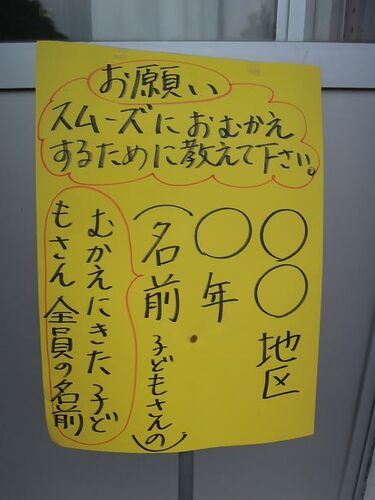 お願い
スムーズにおむかえ
するために教えて下さい。
○○地区
○年
(名前 子どもさんの)
むかえにきた子ど
もさん全員の名前